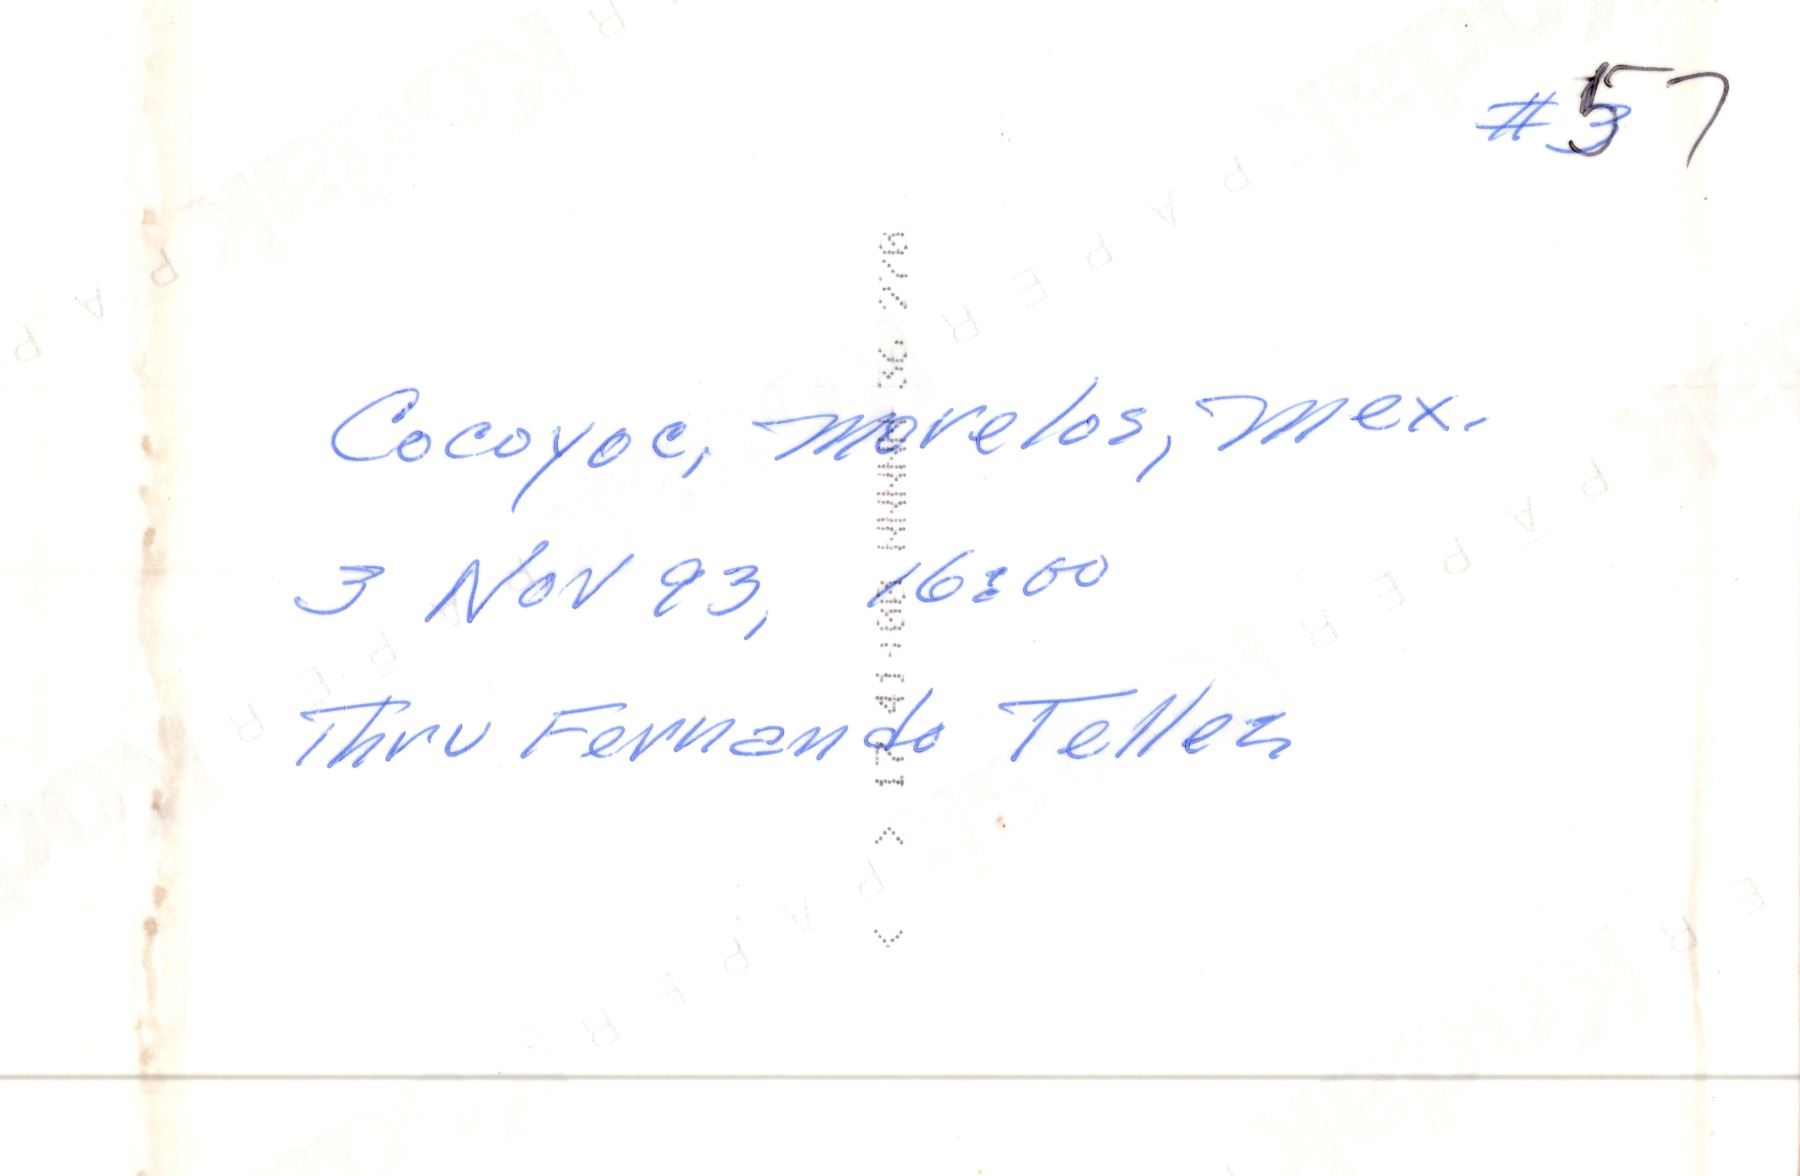 #57
Cocoyoc, Morelos, Mex.
3 Nov 93, 16:00
Thru Fernando Tellez